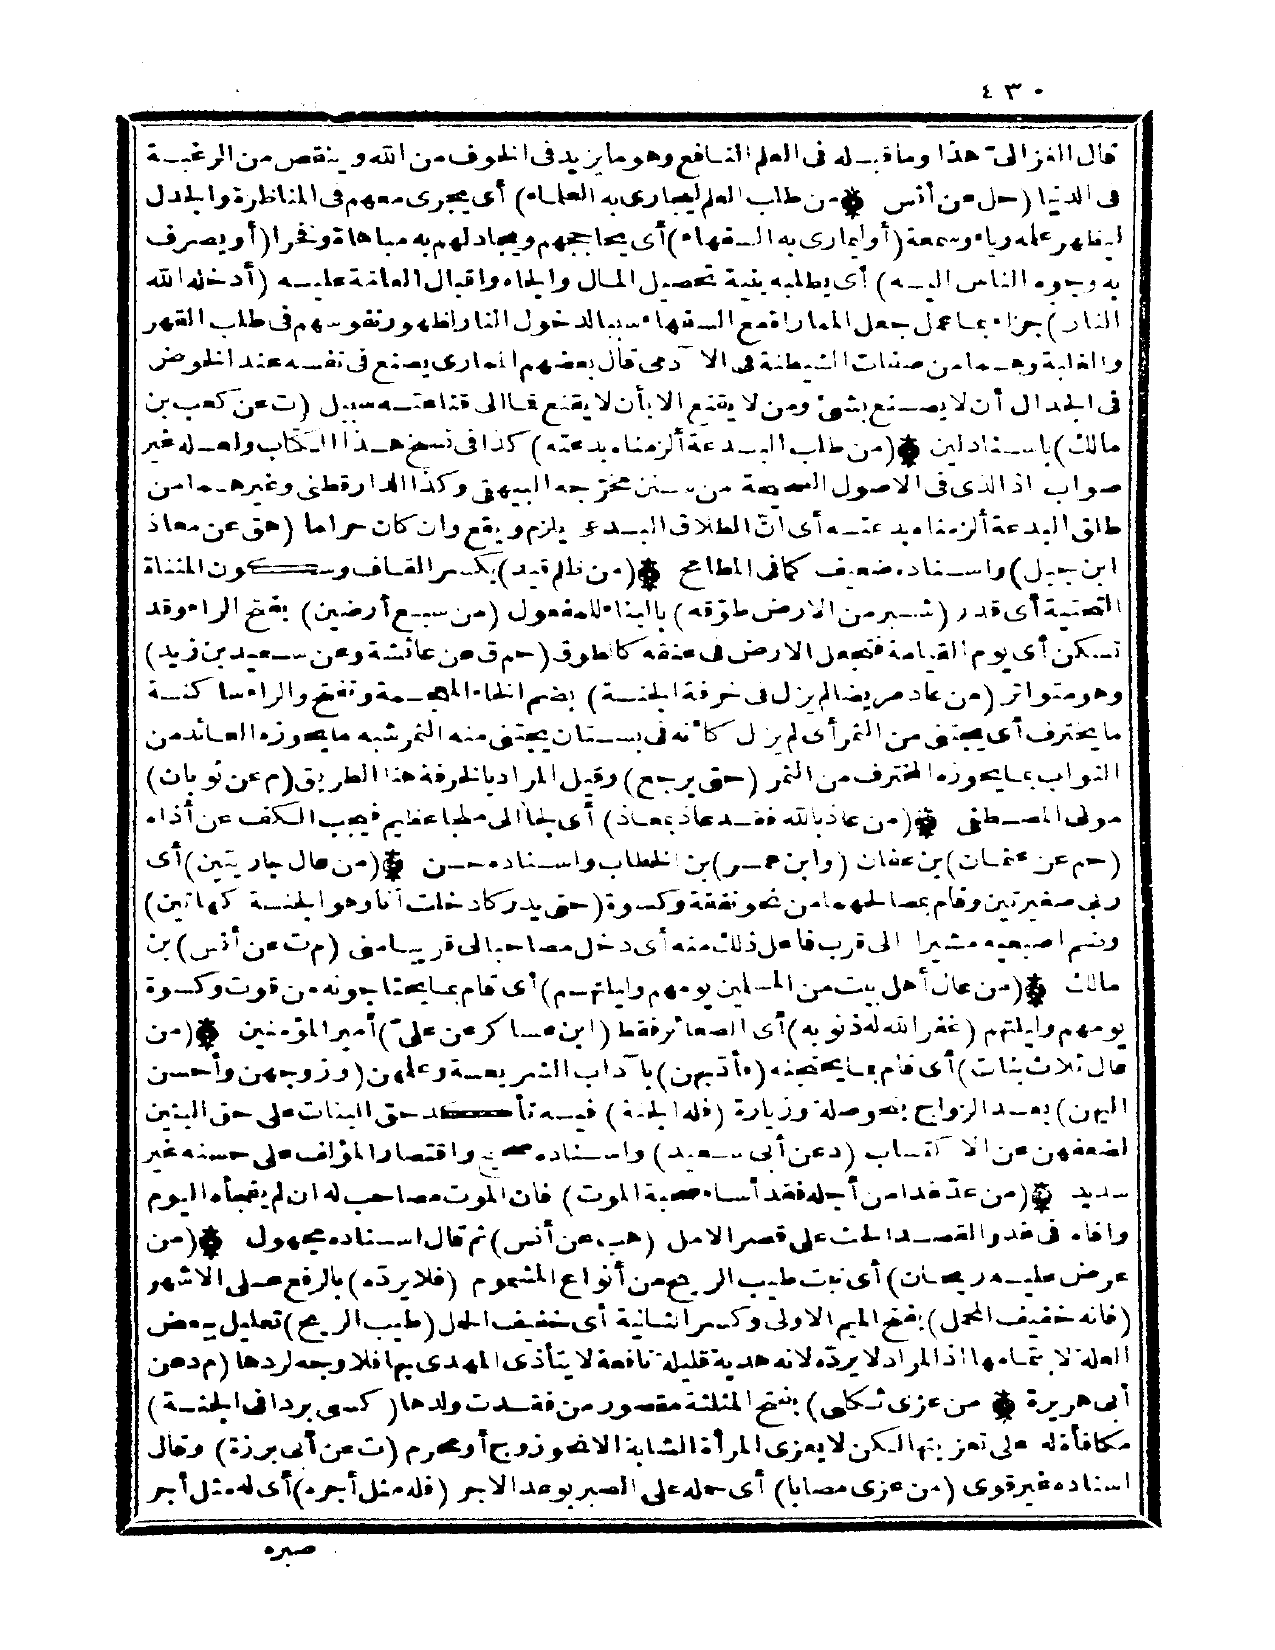 ٤٣٠
قال الغزالى هذا وما قبله فى العلم النافع وهو ما يزيد فى الخوف من الله وينقص من الرغبة
فى الدنيا (حل عن أنس ۞ من طلب العلم ليجارى به العلماء) أى يجرى معهم فى المناظرة والجدل
ليظهر علمه رياء وسمعة (أو ليمارى به السفهاء) أى يحاججهم ويجادلهم به مباهاة وفخرا (أو يصرف
به وجوه الناس اليه) أى يطلبه بنية تحصيل المال والجاه واقبال العامة عليه (أدخله الله
النار) جزاء بما عمل جعل المماراة مع السفهاء سببا لدخول النار لظهور نفوسهم فى طلب القهر
والغلبة وهما من صفات الشيطنة فى الآدمى قال بعضهم الممارى يصنع فى نفسه عند الخوض
فى الجدال أن لا يصنع بشئ ومن لا يقنع الا بأن لا يقنع فما الى قناعته سبيل (ت عن كعب بن
مالك) باسناد لين ۞ (من طلب البدعة ألزمناه بدعته) كذا فى نسخ هذا الكتاب ولعله غير
صواب اذ الذى فى الاصول الصحيحة من سنن مخرجه البيهقى وكذا الدارقطنى وغيرهما من
طلق البدعة ألزمناه بدعته أى انّ الطلاق البدعى يلزم ويقع وان كان حراما (هق عن معاذ
ابن جبل) واسناده ضعيف كما فى المطامح ۞ (من ظلم قيد) بكسر القاف وسكون المثناة
التحتية أى قدر (شبر من الارض طوّقه) بالبناء للمفعول (من سبع أرضين) بفتح الراء وقد
تسكن أى يوم القيامة فتجعل الارض فى عنقه كالطوق (حم ق عن عائشة وعن سعيد بن زيد)
وهو متواتر (من عاد مريضا لم يزل فى خرفة الجنة) بضم الخاء المعجمة وتفتح والراء ساكنة
ما يخترف أى يجتنى من الثمر أى لم يزل كأنه فى بستان يجتنى منه الثمر شبه ما يحوزه العائد من
الثواب بما يحوزه المخترف من الثمر (حتى يرجع) وقيل المراد بالخرفة هنا الطريق (م عن ثوبان)
مولى المصطفى ۞ (من عاذ بالله فقد عاذ بمعاذ) أى لجأ الى ملجا عظيم فيجب الكف عن أذاه
(حم عن عثمان) بن عفان (وابن عمر) بن الخطاب واسناده حسن ۞ (من عال جاريتين) أى
ربى صغيرتين وقام بمصالحهما من نحو نفقة وكسوة (حتى يدركا دخلت أنا وهو الجنة كهاتين)
وضم اصبعيه مشيرا الى قرب فاعل ذلك منه أى دخل مصاحبا لى قريبا منى (م ت عن أنس) بن
مالك ۞ (من عال أهل بيت من المسلمين يومهم وليلتهم) أى قام بما يحتاجونه من قوت وكسوة
يومهم وليلتهم (غفر الله له ذنوبه) أى الصغائر فقط (ابن عساكر عن علىّ) أمير المؤمنين ۞ (من
عال ثلاث بنات) أى قام بما يحتجنه (فأدّبهن) بآداب الشريعة وعلمهن (وزوجهن وأحسن
اليهن) بعد الزواج بنحو صلة وزيارة (فله الجنة) فيه تأكد حق البنات على حق البنين
لضعفهن عن الاكتساب (د عن أبى سعيد) واسناده صحيح واقتصار المؤلف على حسنه غير
سديد ۞ (من عدّ غدا من أجله فقد أساء صحبة الموت) فان الموت مصاحب له ان لم يفجأه اليوم
وافاه فى غد والقصد الحث على قصر الامل (هب عن أنس) ثم قال اسناده مجهول ۞ (من
عرض عليه ريحان) أى نبت طيب الريح من أنواع المشموم (فلا يردّه) بالرفع على الاشهر
(فانه خفيف المحمل) بفتح الميم الاولى وكسر الثانية أى خفيف الحمل (طيب الريح) تعليل ببعض
العلة لا بتمامها اذ المراد لا يردّه لانه هدية قليلة نافعة لا يتأذى المهدى بها فلا وجه لردها (م د عن
أبى هريرة ۞ من عزى ثكلى) بفتح المثلثة مقصور من فقدت ولدها (كسى بردا فى الجنة)
مكافأة له على تعزيتها لكن لا يعزى المرأة الشابة الا نحو زوج أو محرم (ت عن أبى برزة) وقال
اسناده غير قوى (من عزى مصابا) أى حمله على الصبر بوعد الاجر (فله مثل أجره) أى له مثل أجر
صبره